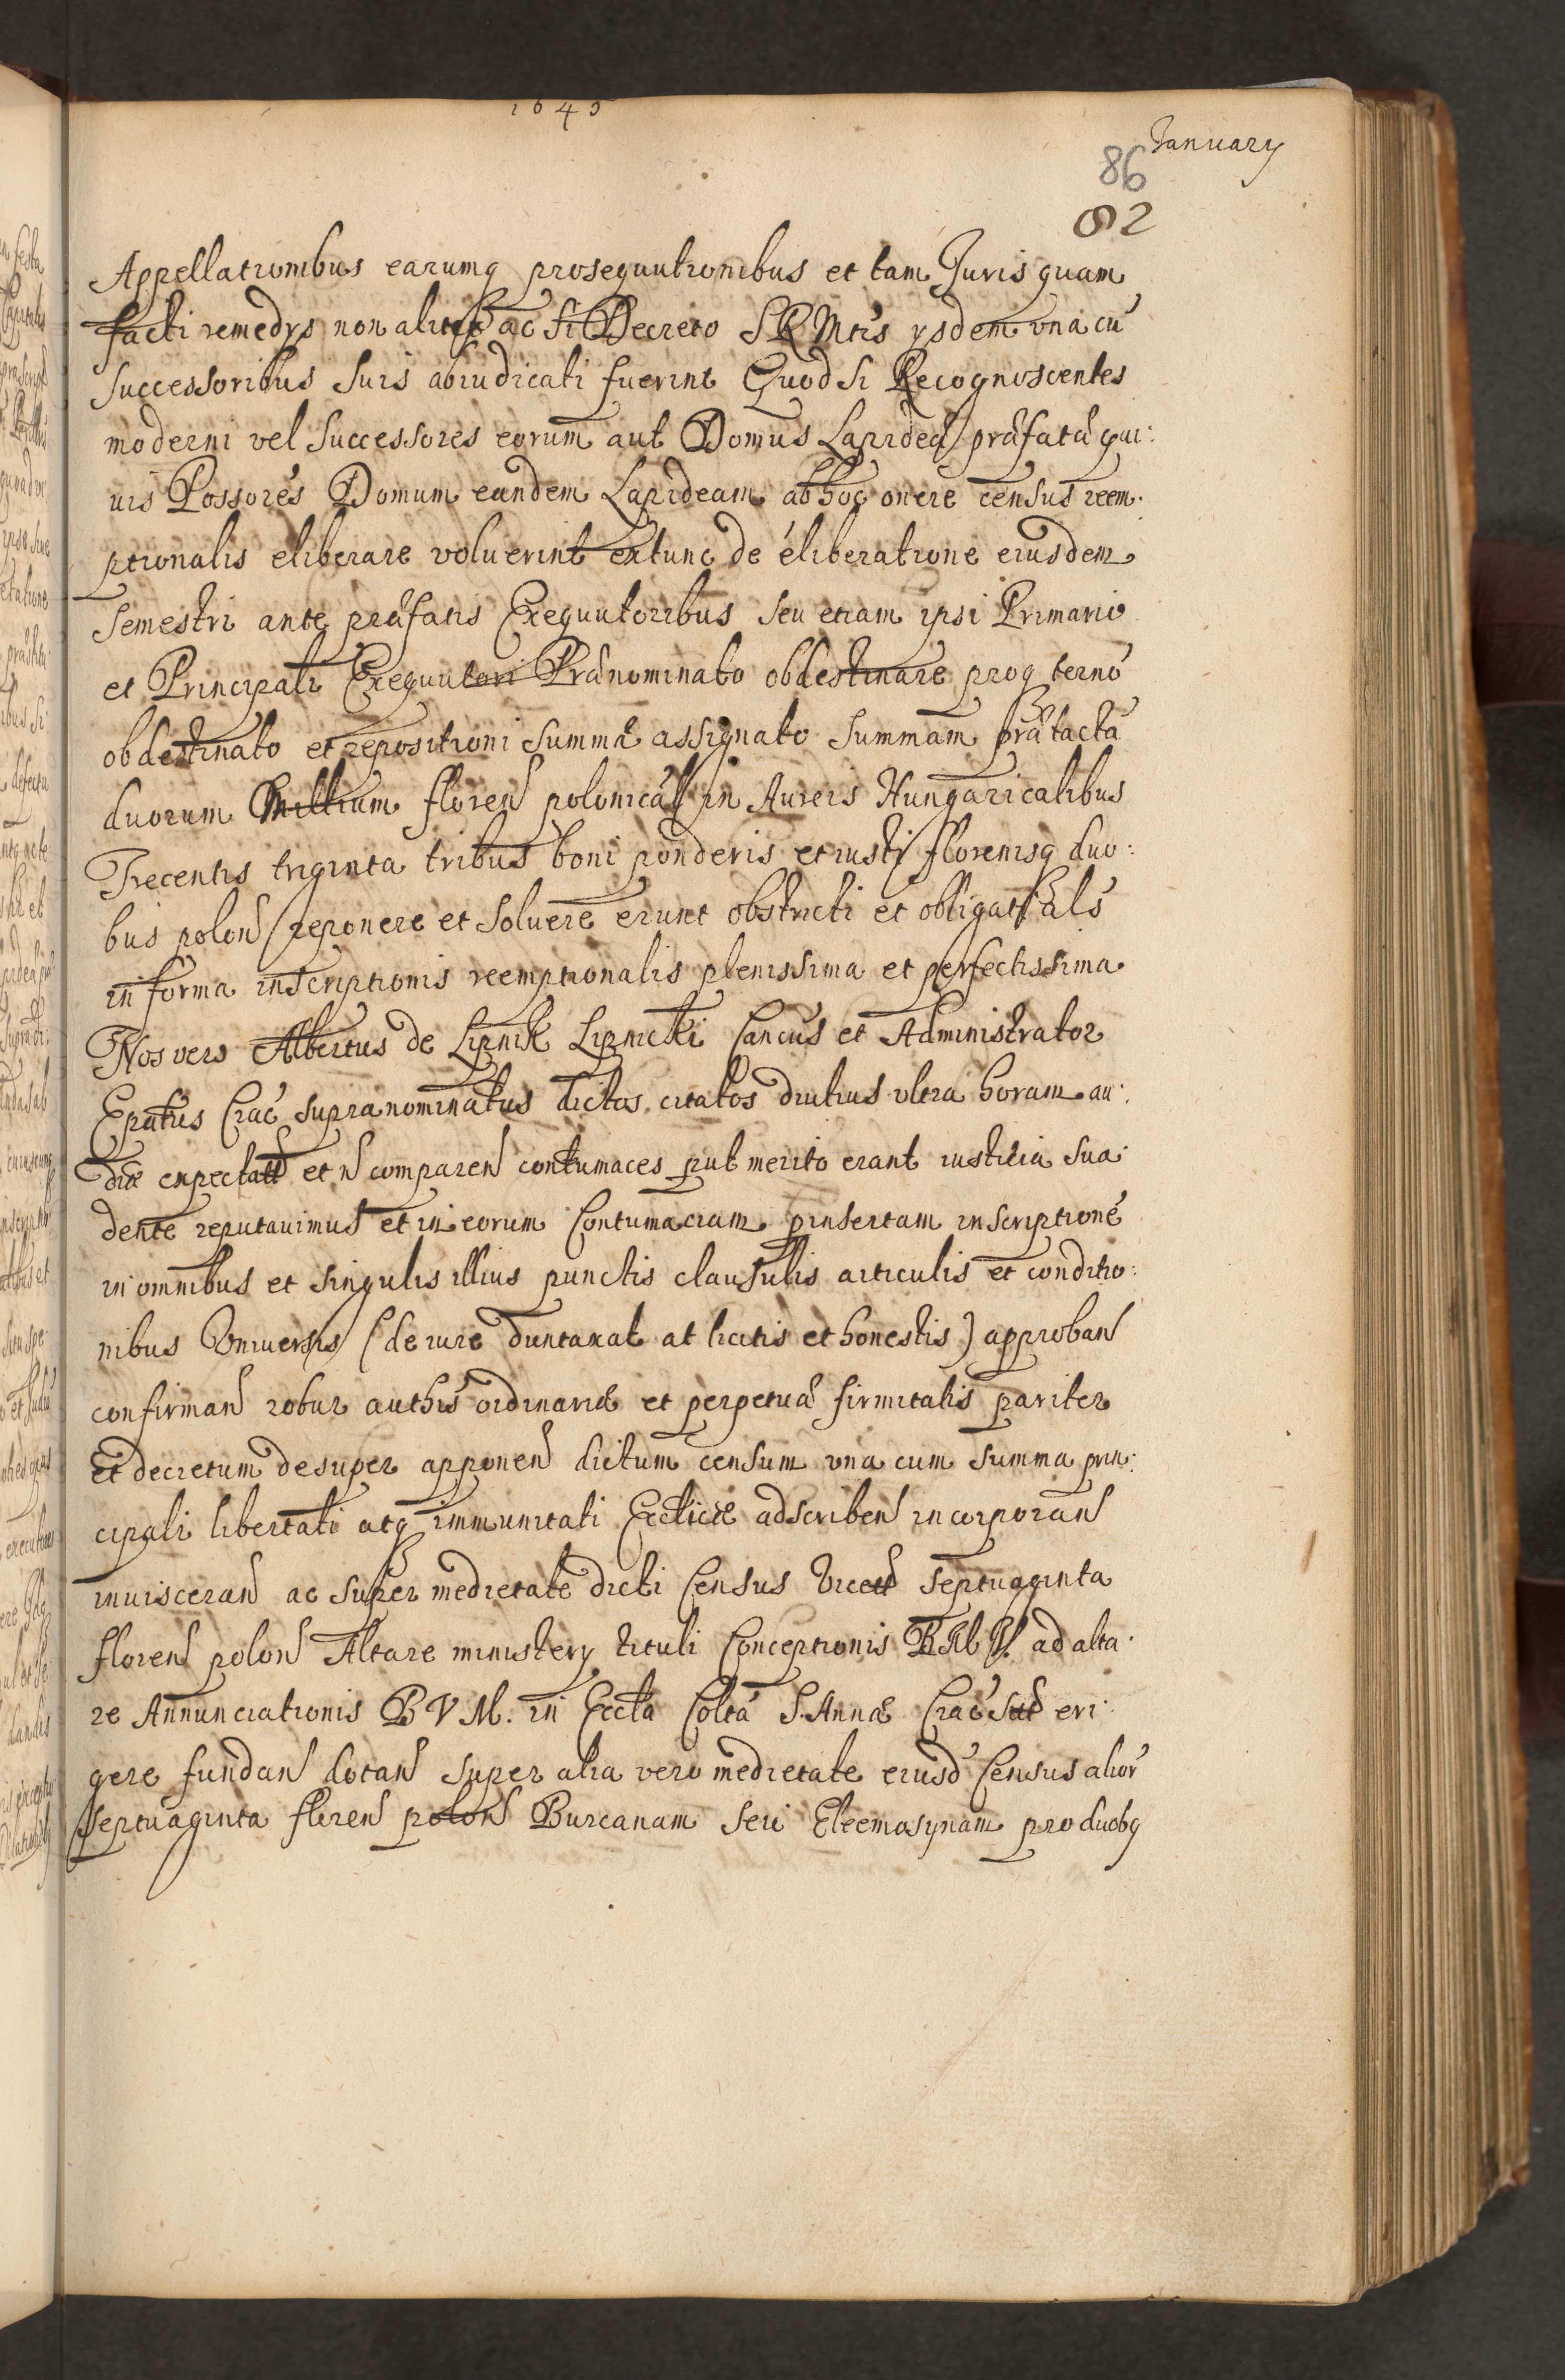 1645
January
86
82
Appellationibus earumq prosequutionibus et tam Juris quam
facti remedys non aliter ac si Decreto SRMtis ysdem una cu
successoribus suis abiudicati fuerint Quod si Recognoscentes
moderni vel successores eorum aut Domus Lapideæ præfatæ qui:
uis Possores Domum eandem Lapideam ab hoc onere census reem:
ptionalis eliberare voluerint extunc de eliberatione eiusdem
semestri ante præfatis Exequutoribus seu etiam ipsi Primario
et Principali Exequutori Prænominato obdestinare proq termo
obdestinato et repositioni summæ assignato summam prætacta
duorum Millium floren polonical in Aureis Hungaricalibus
Trecentis triginta tribus boni ponderis et iusti florenisq duo:
bus polon reponere et soluere erunt obstricti et obligati als
in forma inscriptionis reemptionalis plenissima et perfectissima
Nos vero Albertus de Lipnik Lipnicki Cancus et Administrator
Epatus Crac supranominatus dictos citatos diutius ultra horam au:
diæ expectatt et n comparen contumaces put merito erant iusticia sua:
dente reputauimus et in eorum Contumaciam pinsertam inscriptione
in omnibus et singulis illius punctis clausulis articulis et conditio:
nibus Vniuersis (de iure duntaxat at licitis et honestis) approban
confirman robur authis ordinariæ et perpetuæ firmitatis pariter
et decretum desuper apponen dictum censum una cum summa prin:
cipali libertati atq immunitati Eccticæ adscriben incorporan
inuisceran ac super medietate dicti Census vicett septuaginta
floren polon Altare ministery tituli Conceptionis BMV. ad alta:
re Annunciationis B V M. in Eccta Colta S. Annæ Crac sit eri:
gere fundan dotan super alia vero medietate eiusd Census alior
septuaginta floren polon Burcanam seu Eleemosynam pro duobq